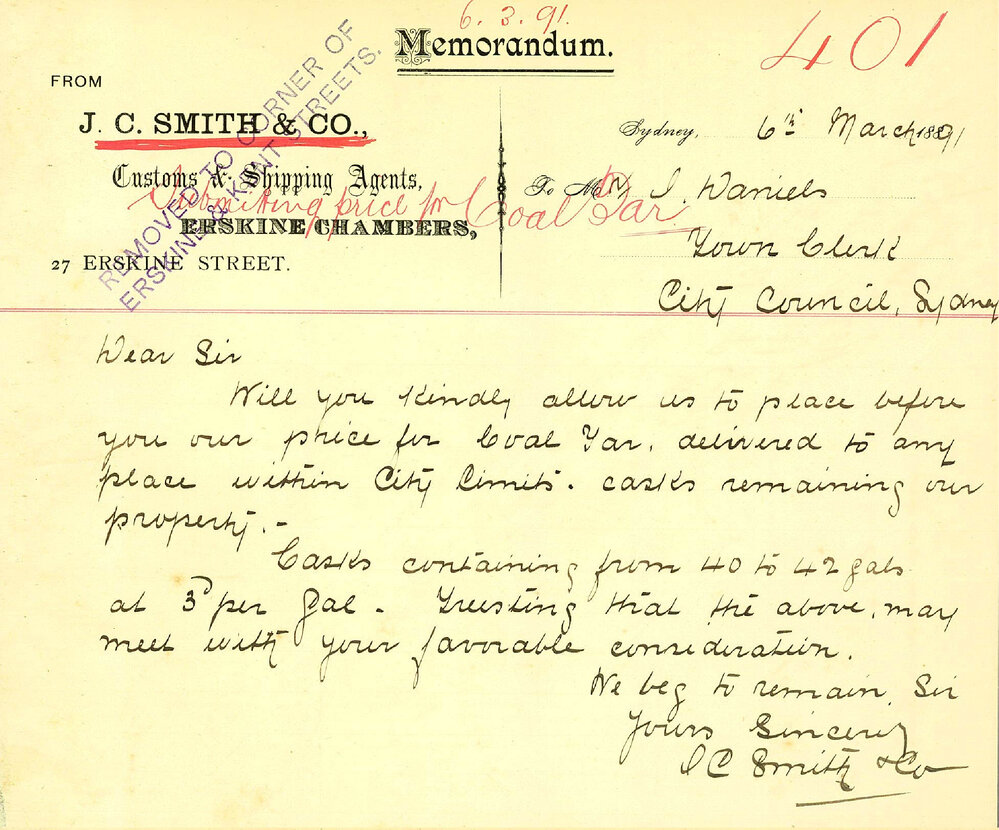 6.3.91.
Memorandum.
401
FROM
J. C. SMITH & CO.,
Customs & Shipping Agents,
ERSKINE CHAMBERS,
27 ERSKINE STREET.
REMOVED TO CORNER OF
ERSKINE & KENT STREETS.
Submitting price for Coal Tar
Sydney, 6th March 1891
To Mr J. Daniels
Town Clerk
City Council, Sydney
Dear Sir
Will you kindly allow us to place before
you our price for Coal Tar, delivered to any
place within City Limits. casks remaining our
property.-
Casks containing from 40 to 42 gals
at 3d per Gal. Trusting that the above, may
meet with your favorable consideration.
We beg to remain, Sir
Yours Sincerely
J C Smith & Co